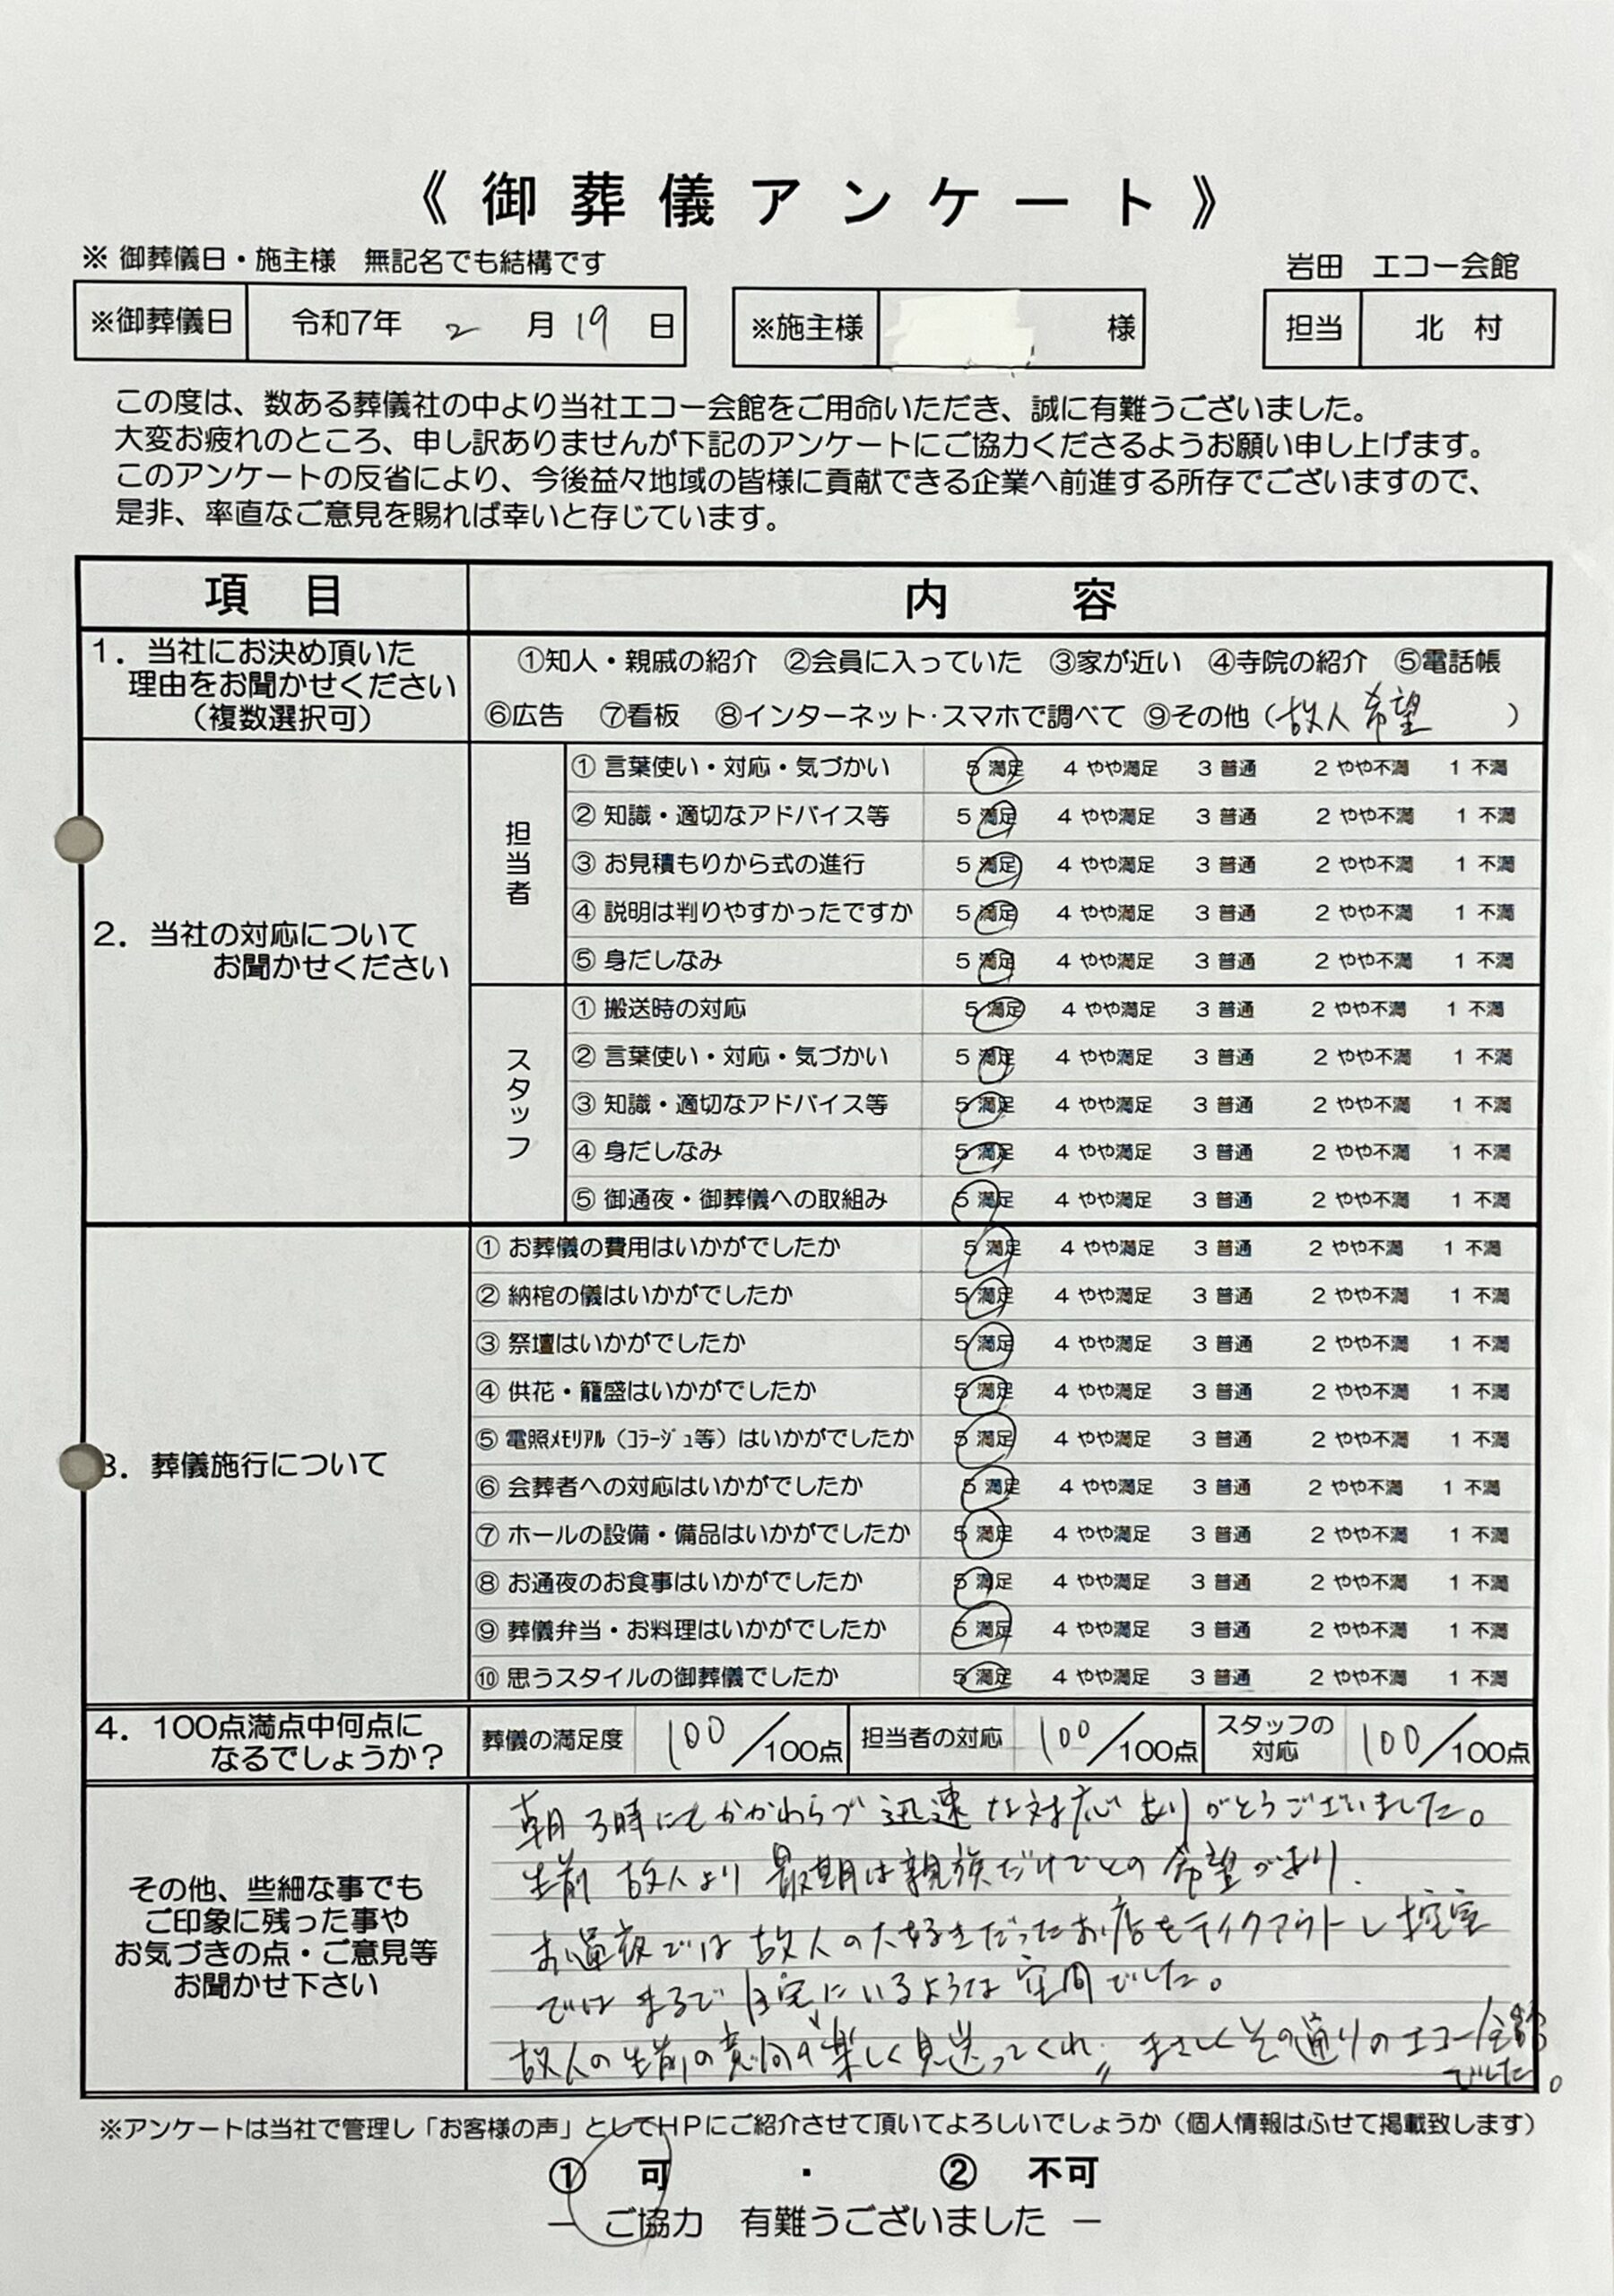 《御葬儀アンケート》
※ 御葬儀日・施主様　無記名でも結構です
岩田　エコー会館
※御葬儀日　令和7年　2　月　19　日
※施主様　様
担当　北　村
この度は、数ある葬儀社の中より当社エコー会館をご用命いただき、誠に有難うございました。
大変お疲れのところ、申し訳ありませんが下記のアンケートにご協力くださるようお願い申し上げます。
このアンケートの反省により、今後益々地域の皆様に貢献できる企業へ前進する所存でございますので、
是非、率直なご意見を賜れば幸いと存じています。
項　目　内　容
1．当社にお決め頂いた
理由をお聞かせください
（複数選択可）
①知人・親戚の紹介　②会員に入っていた　③家が近い　④寺院の紹介　⑤電話帳
⑥広告　⑦看板　⑧インターネット・スマホで調べて　⑨その他（故人希望　）
2．当社の対応について
お聞かせください
担当者
① 言葉使い・対応・気づかい　5 満足　4 やや満足　3 普通　2 やや不満　1 不満
② 知識・適切なアドバイス等　5 満足　4 やや満足　3 普通　2 やや不満　1 不満
③ お見積もりから式の進行　5 満足　4 やや満足　3 普通　2 やや不満　1 不満
④ 説明は判りやすかったですか　5 満足　4 やや満足　3 普通　2 やや不満　1 不満
⑤ 身だしなみ　5 満足　4 やや満足　3 普通　2 やや不満　1 不満
スタッフ
① 搬送時の対応　5 満足　4 やや満足　3 普通　2 やや不満　1 不満
② 言葉使い・対応・気づかい　5 満足　4 やや満足　3 普通　2 やや不満　1 不満
③ 知識・適切なアドバイス等　5 満足　4 やや満足　3 普通　2 やや不満　1 不満
④ 身だしなみ　5 満足　4 やや満足　3 普通　2 やや不満　1 不満
⑤ 御通夜・御葬儀への取組み　5 満足　4 やや満足　3 普通　2 やや不満　1 不満
3．葬儀施行について
① お葬儀の費用はいかがでしたか　5 満足　4 やや満足　3 普通　2 やや不満　1 不満
② 納棺の儀はいかがでしたか　5 満足　4 やや満足　3 普通　2 やや不満　1 不満
③ 祭壇はいかがでしたか　5 満足　4 やや満足　3 普通　2 やや不満　1 不満
④ 供花・籠盛はいかがでしたか　5 満足　4 やや満足　3 普通　2 やや不満　1 不満
⑤ 電照ﾒﾓﾘｱﾙ（ｺﾗｰｼﾞｭ等）はいかがでしたか　5 満足　4 やや満足　3 普通　2 やや不満　1 不満
⑥ 会葬者への対応はいかがでしたか　5 満足　4 やや満足　3 普通　2 やや不満　1 不満
⑦ ホールの設備・備品はいかがでしたか　5 満足　4 やや満足　3 普通　2 やや不満　1 不満
⑧ お通夜のお食事はいかがでしたか　5 満足　4 やや満足　3 普通　2 やや不満　1 不満
⑨ 葬儀弁当・お料理はいかがでしたか　5 満足　4 やや満足　3 普通　2 やや不満　1 不満
⑩ 思うスタイルの御葬儀でしたか　5 満足　4 やや満足　3 普通　2 やや不満　1 不満
4．100点満点中何点に
なるでしょうか？
葬儀の満足度　100／100点　担当者の対応　100／100点　スタッフの対応　100／100点
その他、些細な事でも
ご印象に残った事や
お気づきの点・ご意見等
お聞かせ下さい
朝3時にもかかわらず迅速な対応ありがとうございました。
生前故人より最期は親族だけでとの希望があり、
お通夜では故人の大好きだったお店をテイクアウトし控室
ではまるで自宅にいるような空間でした。
故人の生前の意向の楽しく見送ってくれ〃まさしくその通りのエコー会館
でした。
※アンケートは当社で管理し「お客様の声」としてHPにご紹介させて頂いてよろしいでしょうか（個人情報はふせて掲載致します）
①　可　・　②　不可
―　ご協力　有難うございました　―